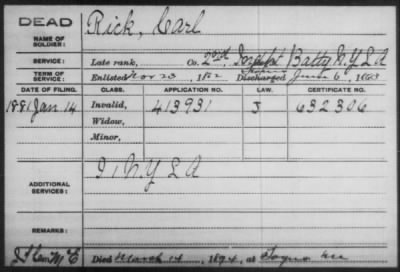 DEAD
NAME OF SOLDIER: Rick, Carl
SERVICE: Late rank, Co. 23rd Indpt Batty N.Y.L.A
TERM OF SERVICE: Enlisted Nov 23, 1862 Discharged June 6, 1863
DATE OF FILING. CLASS. APPLICATION NO. LAW. CERTIFICATE NO.
1881 Jan 14 Invalid, 413931 J 632306
Widow,
Minor,
ADDITIONAL SERVICES: I, N.Y L A
REMARKS:
Died March 14, 1894, at Togus Me